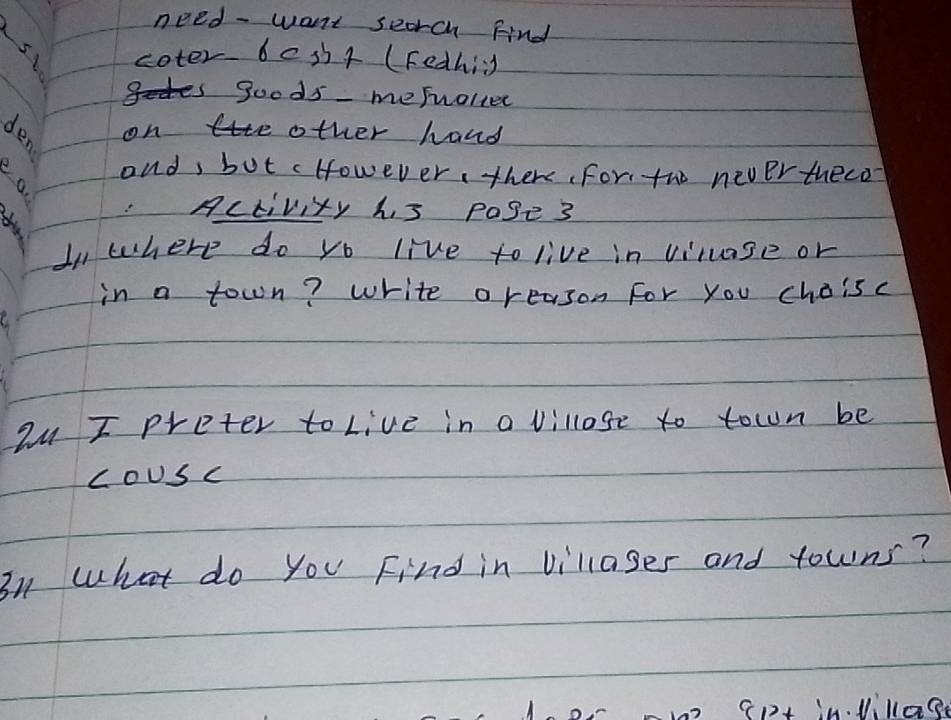 need - want search find
coter - (Fedhii)
goods -
on the other hand
and, but, However, there, For,
Activity 4.3 page 3
1, where do yo live to live in village or
in a town? write a reason For you choise
2, I preter to Live in a village to town be
couse
3, what do you Find in villages and towns?
in villag